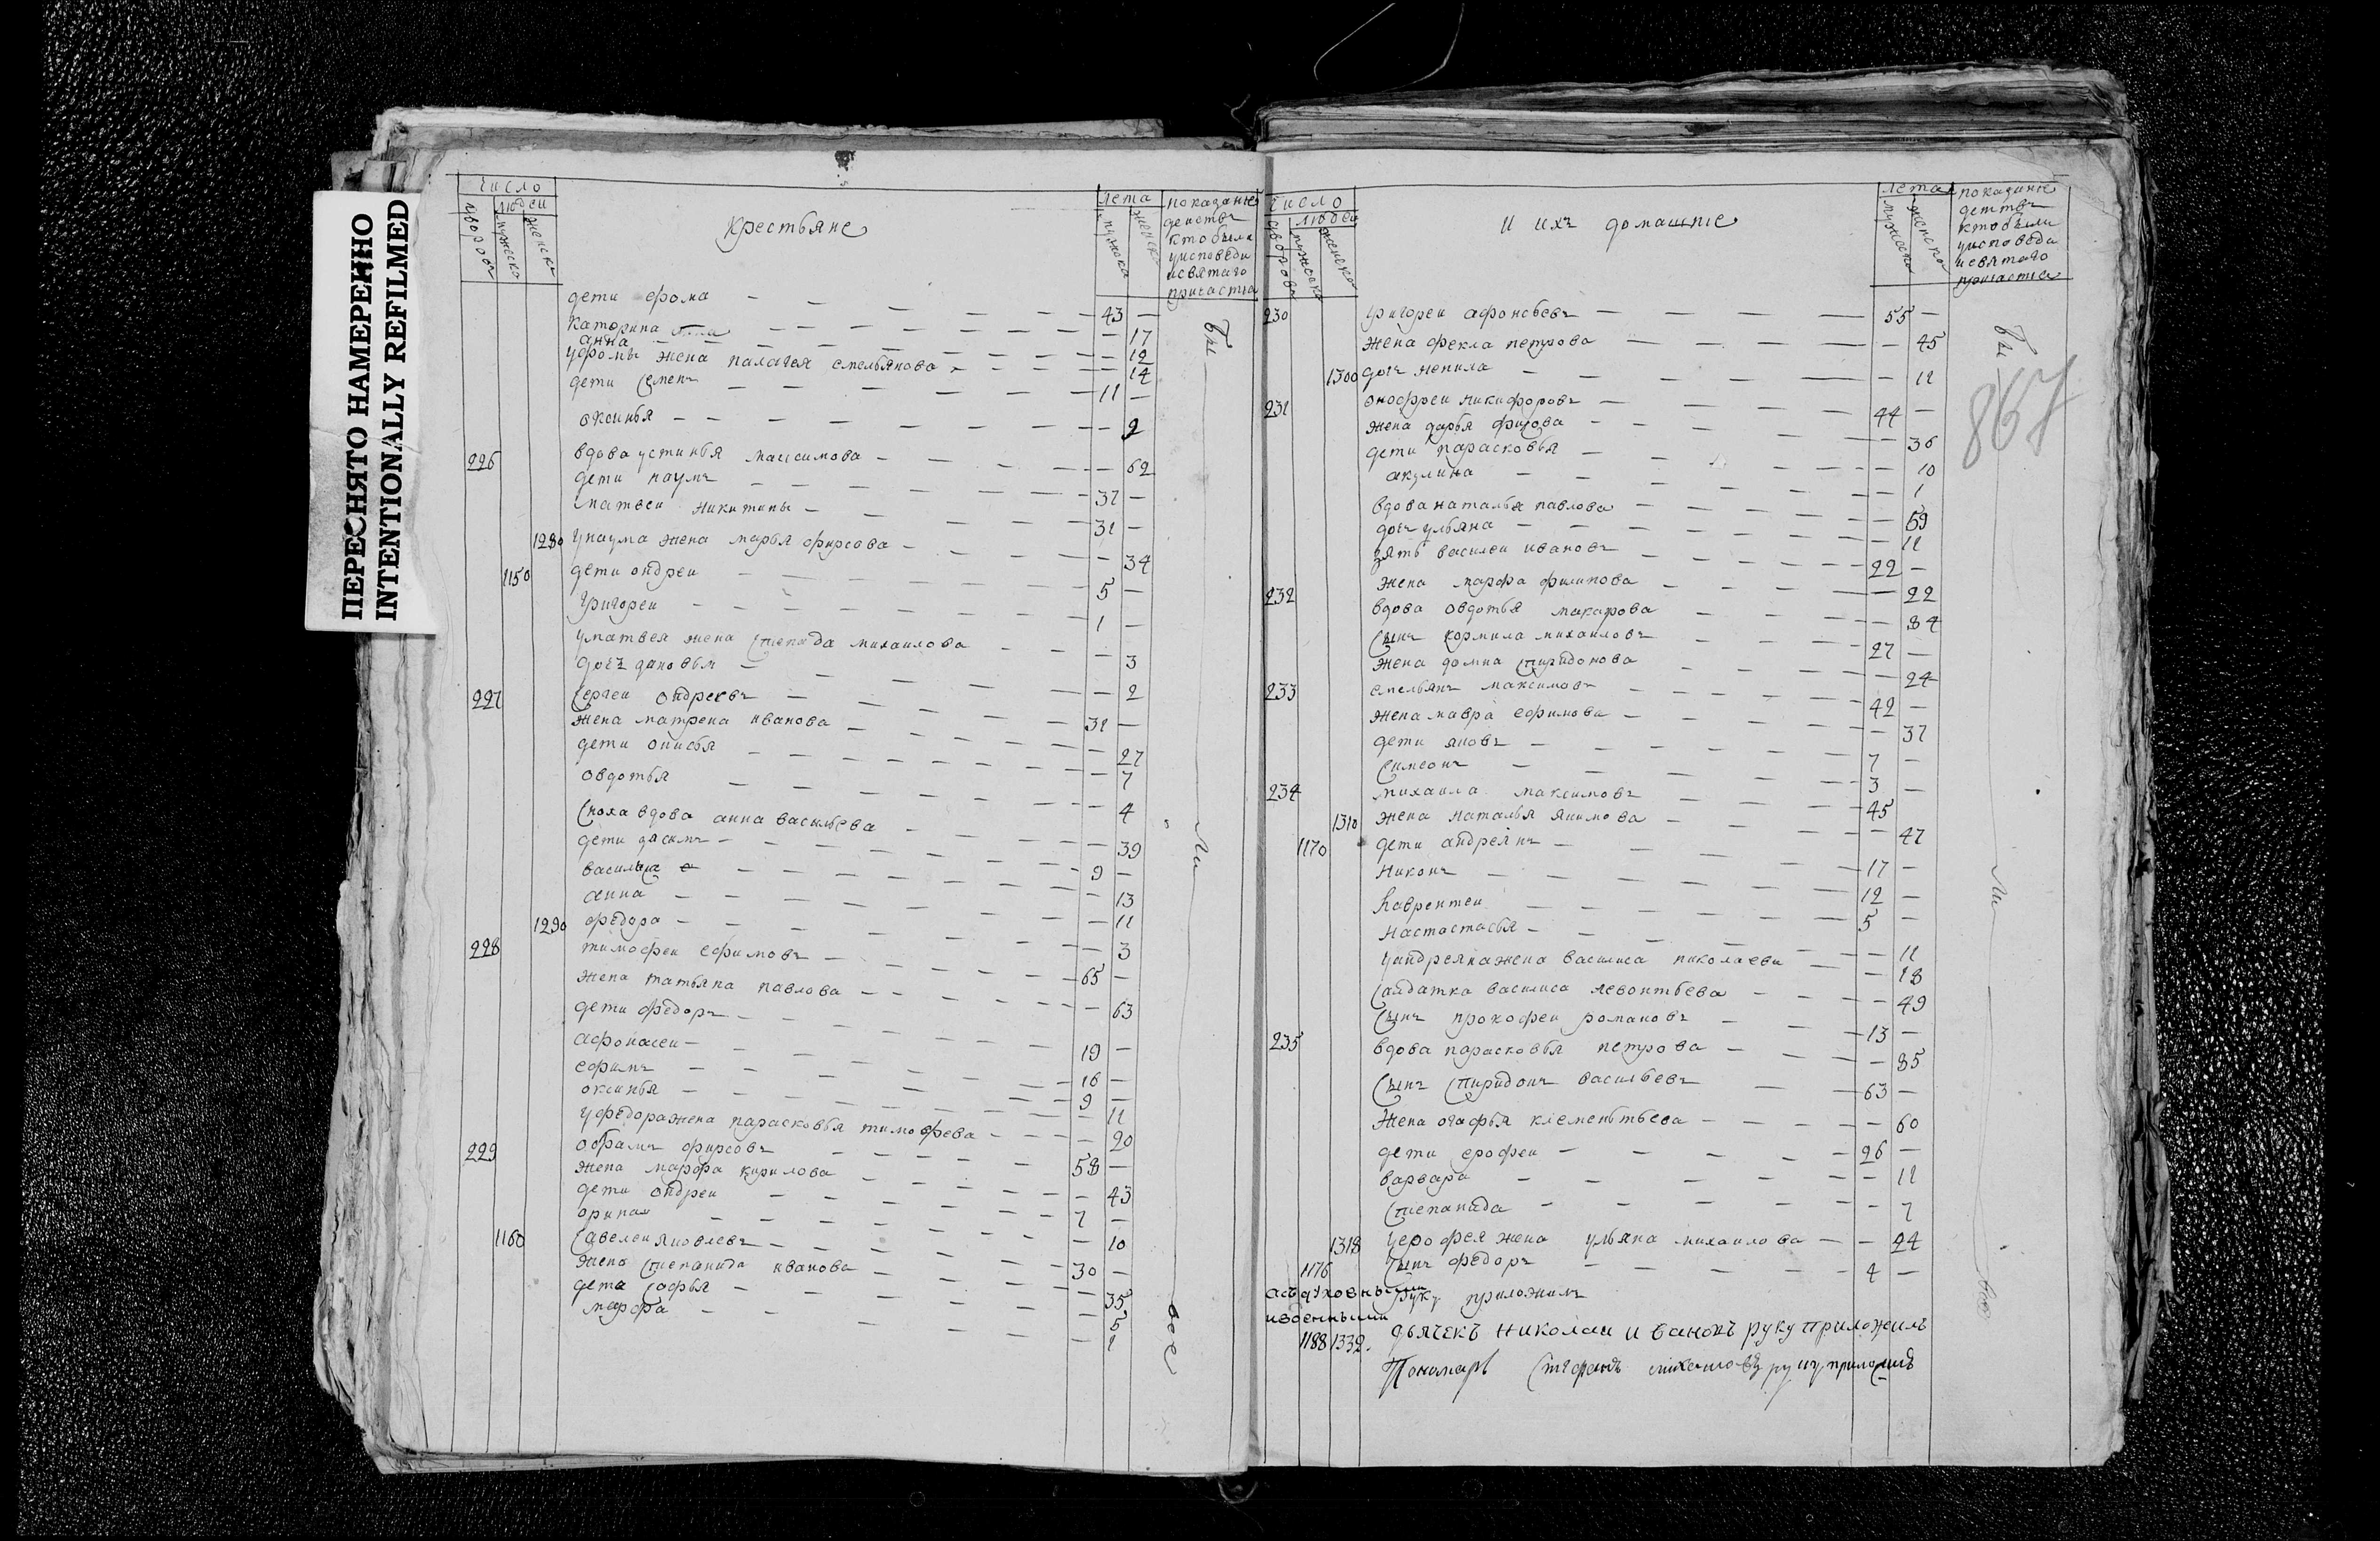 ПЕРЕСНЯТО НАМЕРЕННО
INTENTIONALLY REFILMED
число
людеи
дворовъ
мужеска
женска
крестьяне
лета
мужска
женска
показание
деиствъ
кто были
уисповеди
исвятаго
причастиа
дети фома — 43 —
каторина — — 17
анна — — 12
уфомы жена палагея емельянова — — 14
дети семенъ — 11 —
оксинья — — 9
226 вдова устинья максимова — — 62
дети наумъ — 37 —
матвеи никитины — 31 —
1280 унаума жена марья фирсова — — 34
1150 дети ондреи — 5 —
григореи — 1 —
уматвея жена степанида михаилова — — 3
дочь зиновья — — 2
227 сергеи ондреевъ — 31 —
жена матрена иванова — — 27
дети онисья — — 7
овдотья — — 4
сноха вдова анна васильева — — 39
дети — 9 —
— 13
анна — — 11
1290 федора — — 3
228 тимофеи ефимовъ — 65 —
жена татьяна павлова — — 63
дети федоръ — 19 —
афонасеи — 16 —
ефимъ — 9 —
оксинья — — 11
уфедора жена парасковья тимофеева — — 20
229 обрамъ фирсовъ — 58 —
жена марфа кирилова — — 43
дети ондреи — 7 —
орина — — 10
1160 савелеи яковлевъ — 30 —
жена степанида иванова — — 35
дети софья — — 5
марфа — — 1
Бы
ли
все
число
людеи
дворовъ
мужеска
женска
и ихъ домашние
лета
мужеска
женска
показание
деиствъ
кто были
уисповеди
исвятаго
причастиа
867
230 григореи афонсьевъ — 55 —
жена фекла петрова — — 45
1300 дочь ненила — — 12
231 онофреи никифоровъ — 44 —
жена дарья фирсова — — 36
дети парасковья — — 10
акулина — — 1
вдова наталья павлова — — 59
дочь ульяна — — 11
зять василеи ивановъ — 22 —
жена марфа филипова — — 22
232 вдова овдотья макарова — — 84
сынъ кормила михаиловъ — 27 —
жена домна спиридонова — — 24
233 емельянъ максимовъ — 42 —
жена мавра ефимова — — 37
дети яковъ — 7 —
симеонъ — 3 —
234 михаила максимовъ — 45
1310 жена наталья якимова — — 47
1170 дети андреянъ — 17 —
никонъ — 12 —
лаврентеи — 5 —
настастасья — — 11
уандреяна жена василиса николаева — — 18
салдатка василиса левонтьева — — 49
сынъ прокофеи романовъ — 13 —
235 вдова парасковья петрова — — 85
сынъ спиридонъ васильевъ — 63 —
жена огафья клементьева — — 60
дети ерофеи — 26 —
варвара — — 11
степанида — — 7
1318 уерофея жена ульяна михаилова — — 24
1176 сынъ федоръ — 4 —
асъдуховными руку приложилъ
ивоенными
1188 1332. дьячекъ николаи ивановъ руку приложилъ
Пономарь стефанъ михаиловъ руку приложилъ
Бы
ли
все